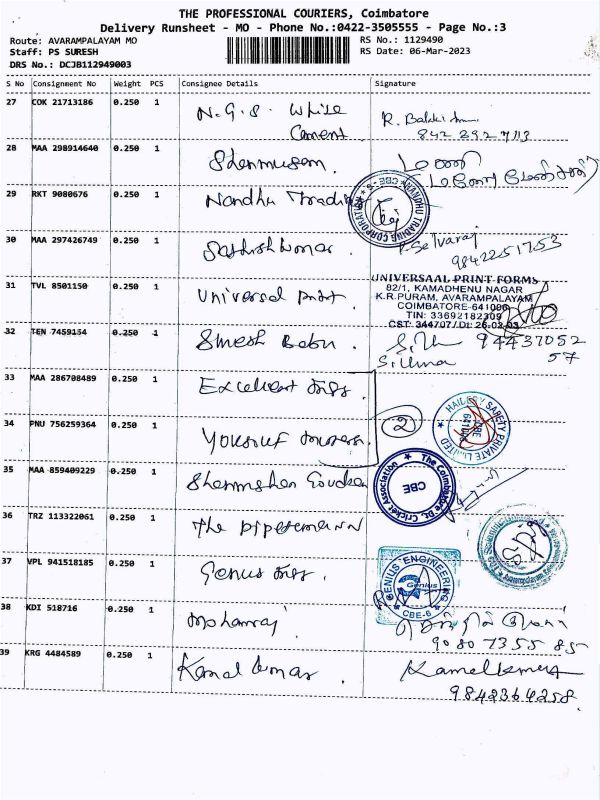 THE PROFESSIONAL COURIERS, Coimbatore
Delivery Runsheet - MO - Phone No.:0422-3505555 - Page No.:3
Route: AVARAMPALAYAM MO
RS No.: 1129490
Staff: PS SURESH
RS Date: 06-Mar-2023
DRS No.: DCJB112949003
S No Consignment No Weight PCS Consignee Details Signature
27 COK 21713186 0.250 1 N.G.S. White R. Balki
Cement 842 392 7113
28 MAA 298914640 0.250 1 Shenmugam மணி
29 RKT 9080676 0.250 1 Nandhu Trading NANDHU TRADING CORPORATION CBE-6
30 MAA 297426749 0.250 1 Sathishkumar P. Selvaraj
9842251753
31 TVL 8501150 0.250 1 Universal print. UNIVERSAAL PRINT FORMS
82/1, KAMADHENU NAGAR
K.R.PURAM, AVARAMPALAYAM
COIMBATORE-641006
TIN: 33692182309
CST: 344707/Dt: 26-02-03
32 TEN 7459154 0.250 1 Suresh Babu. S. Uma 9443705257
S. Uma
33 MAA 286708489 0.250 1 Excellent
34 PNU 756259364 0.250 1 Yousuf 2 HAILEY SAFETY PRIVATE LIMITED CBE
35 MAA 859409229 0.250 1 The Coimbatore Dt. Cricket Association CBE
36 TRZ 113322061 0.250 1 The pipeemann
37 VPL 941518185 0.250 1 Genius GENIUS ENGINEERING Genius CBE-6
38 KDI 518716 0.250 1 Mohanraj
90807355 85
39 KRG 4484589 0.250 1 Kamal kumar Kamalkumar
9842364258.